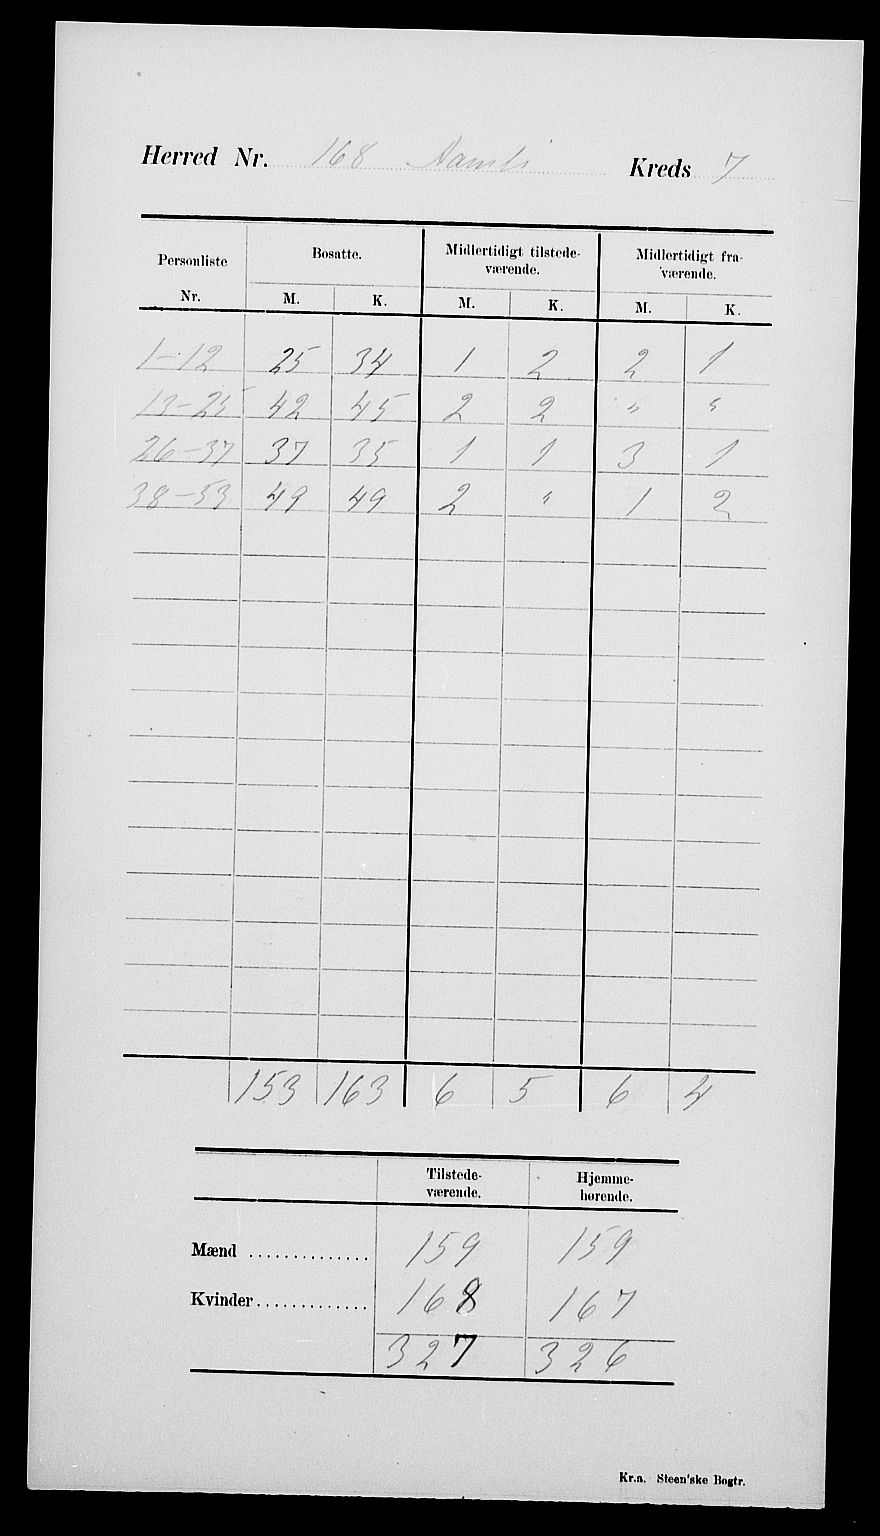 Herred Nr. 168 Aamli Kreds 7
Personliste Nr. Bosatte. Midlertidigt tilstede-værende. Midlertidigt fra-værende.
M. K. M. K. M. K.
1-12 25 34 1 2 2 1
13-25 42 45 2 2 " "
26-37 37 35 1 1 3 1
38-53 49 49 2 " 1 2
153 163 6 5 6 4
Tilstede-værende. Hjemme-hørende.
Mænd .............. 159 159
Kvinder............. 168 167
327 326
Kr.a. Steen'ske Bogtr.